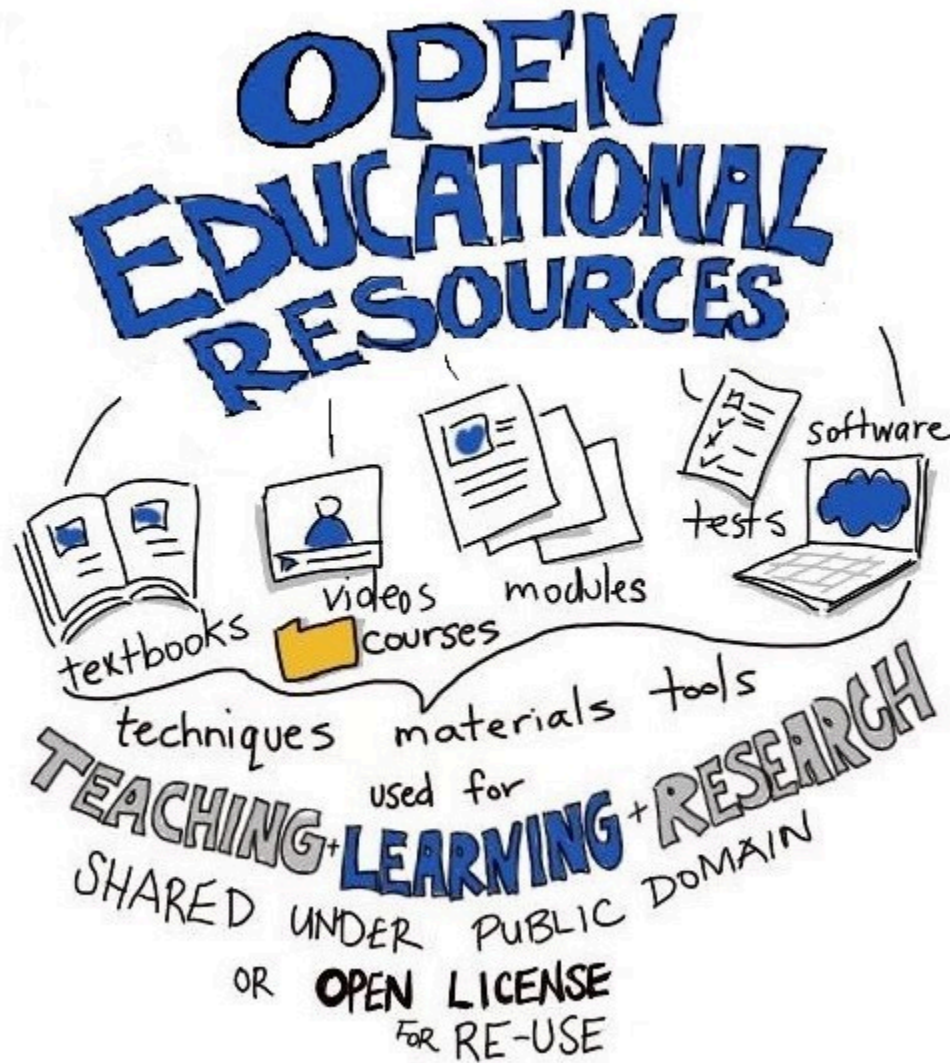 OPEN
EDUCATIONAL
RESOURCES
software
tests
textbooks
videos
modules
courses
techniques materials tools
used for
TEACHING + LEARNING + RESEARCH
SHARED UNDER PUBLIC DOMAIN
OR OPEN LICENSE
FOR RE-USE